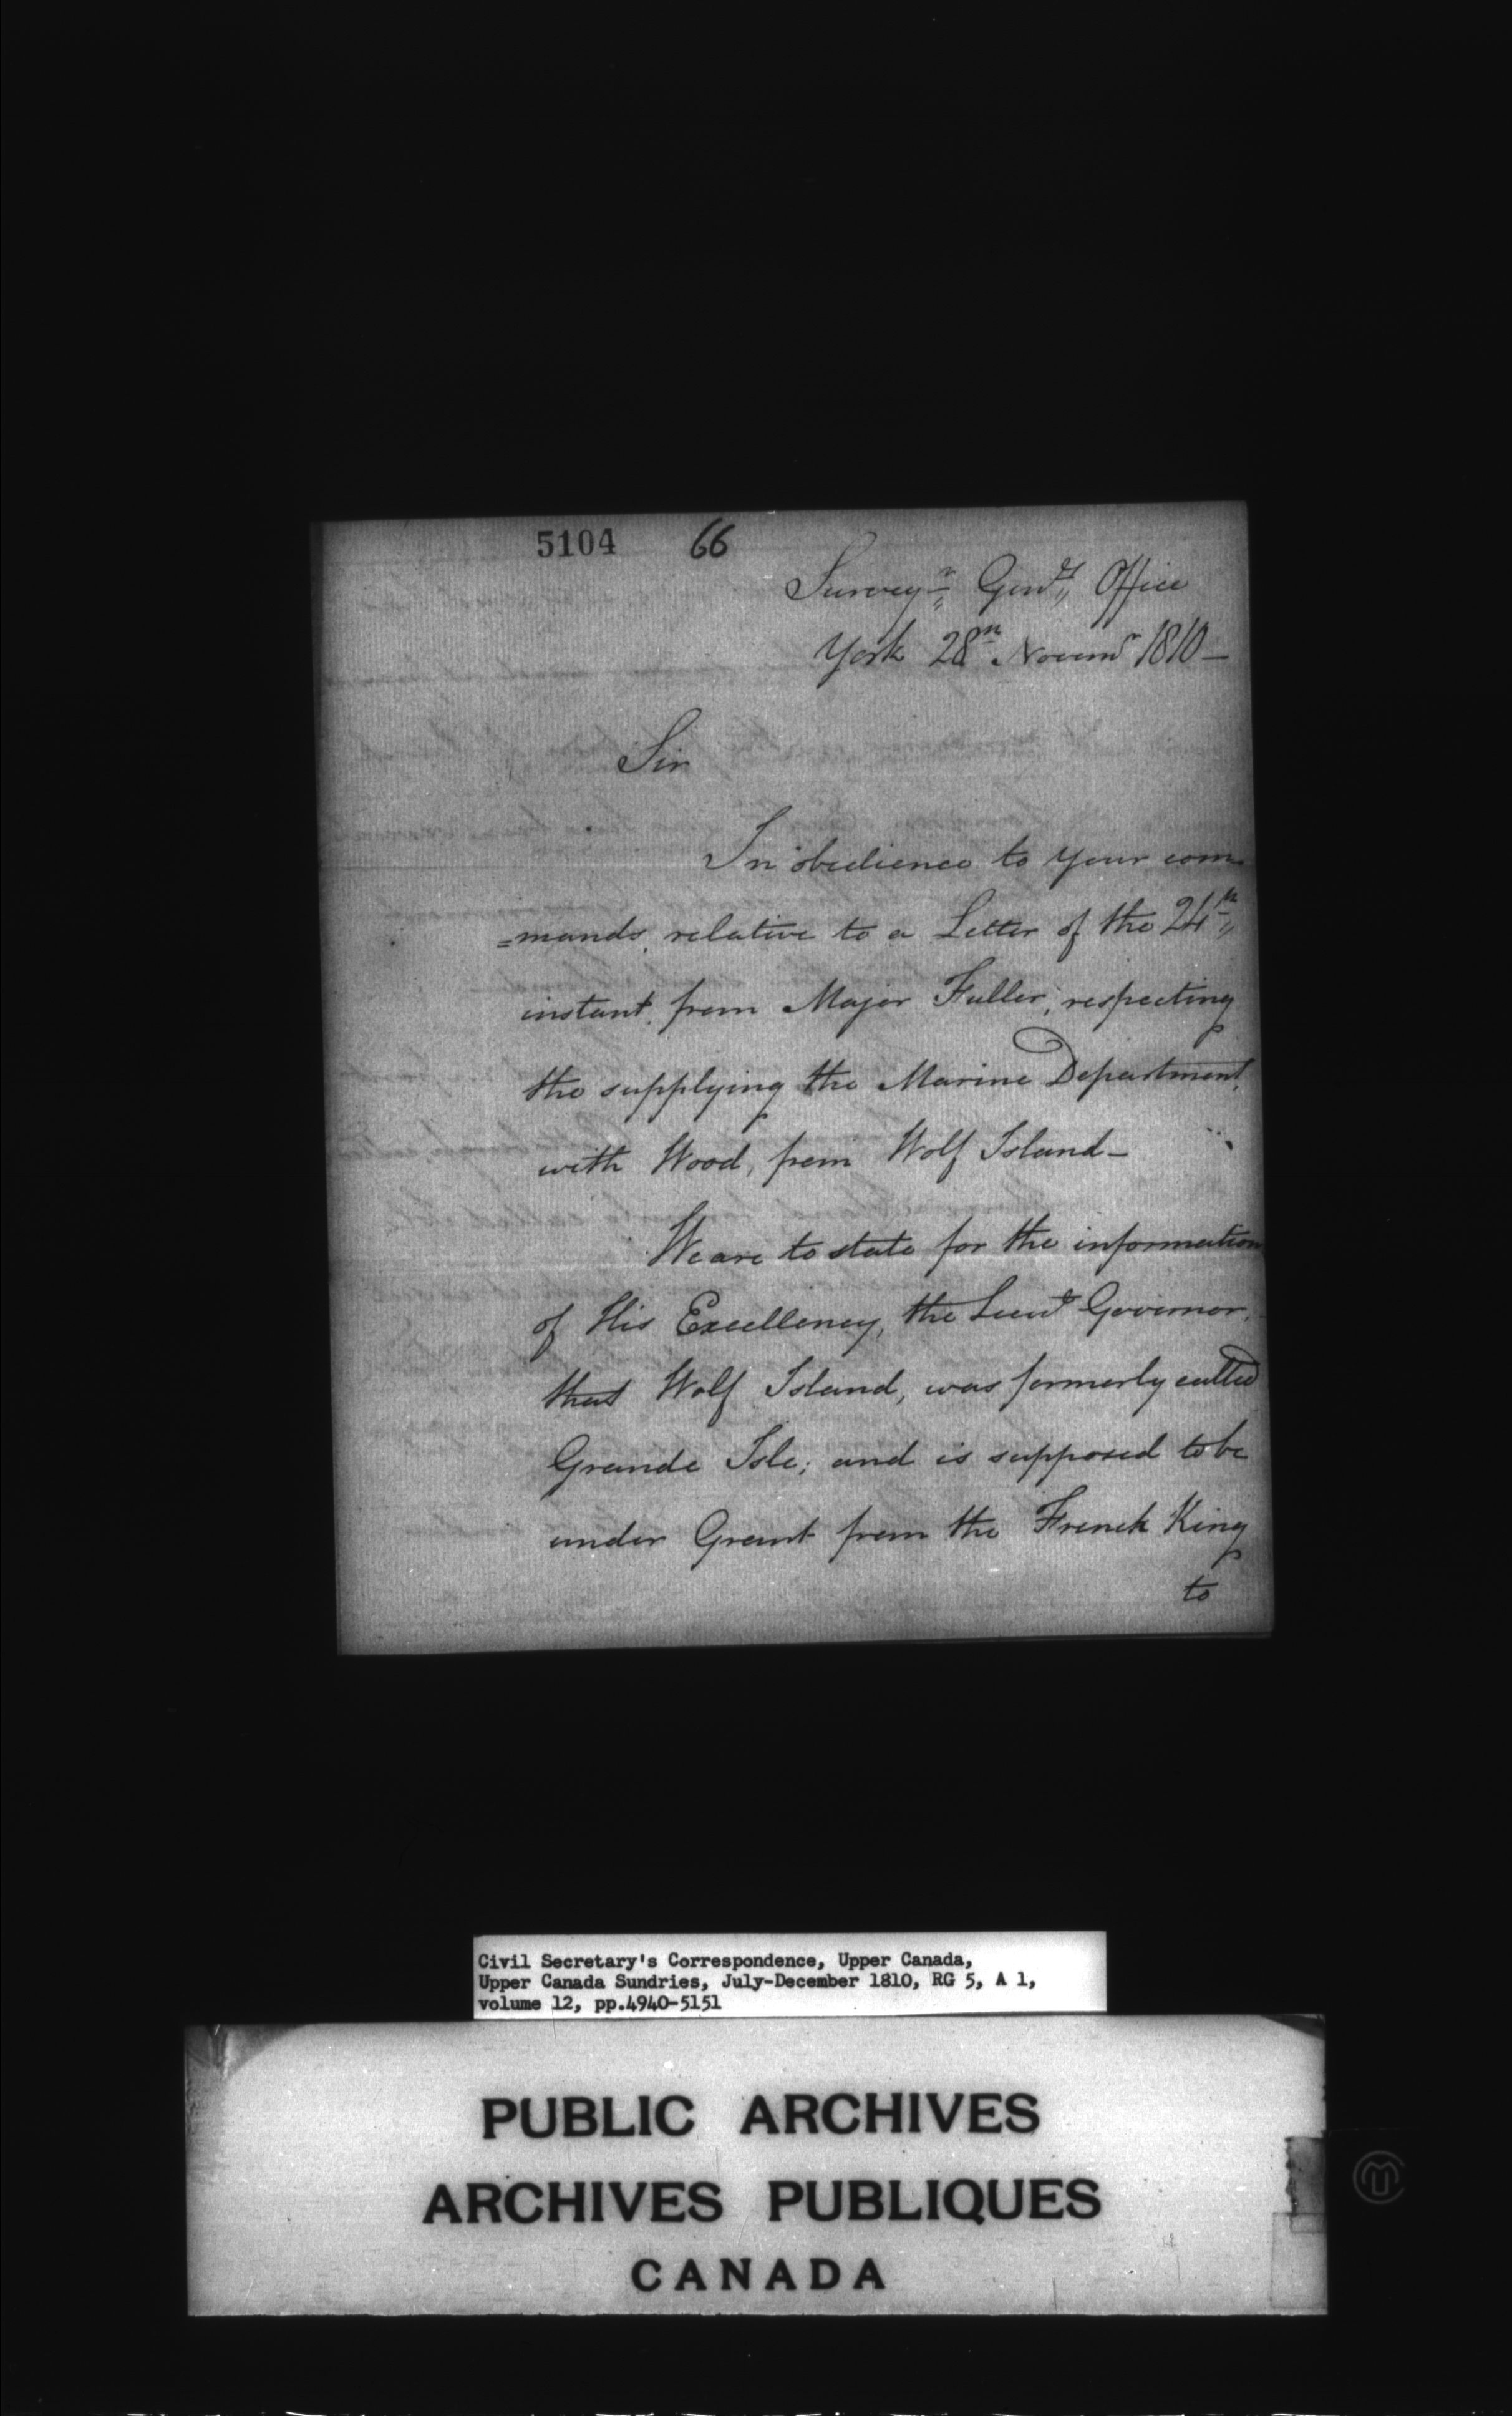 5104 66
Surveyr Genls Office
York 28th Novemr 1810 —
Sir
In obedience to your com
=mands, relative to a Letter of the 24th
instant, from Major Fuller, respecting
the supplying the Marine Department,
with Wood, from Wolf Island —
We are to state for the information
of His Excellency, the Lieut Governor,
that Wolf Island, was formerly called
Grande Isle; and is supposed to be
under Grant from the French King
to
Civil Secretary's Correspondence, Upper Canada,
Upper Canada Sundries, July-December 1810, RG 5, A 1,
volume 12, pp.4940-5151
PUBLIC ARCHIVES
ARCHIVES PUBLIQUES
CANADA